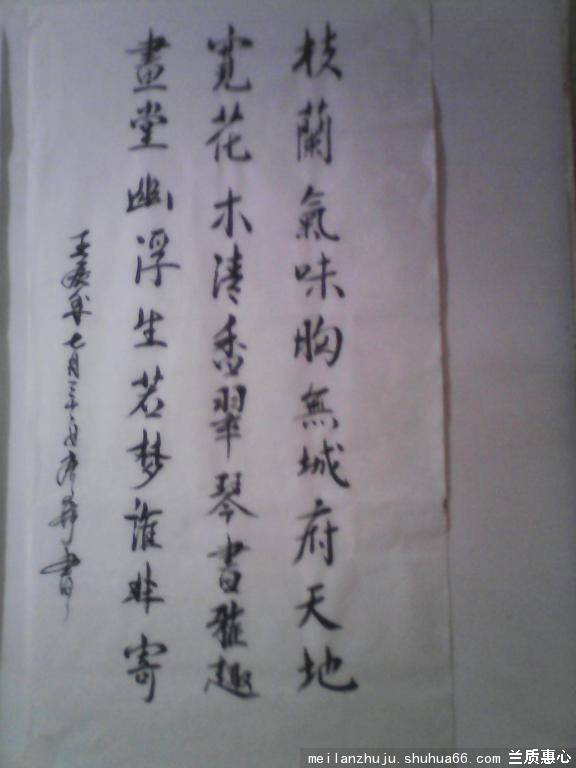 枝蘭氣味胸無城府天地
寬花木清香翠琴書雅趣
畫堂幽浮生若梦誰非寄
壬辰年七月三十
書
meilanzhuju.shuhua66.com 兰质惠心